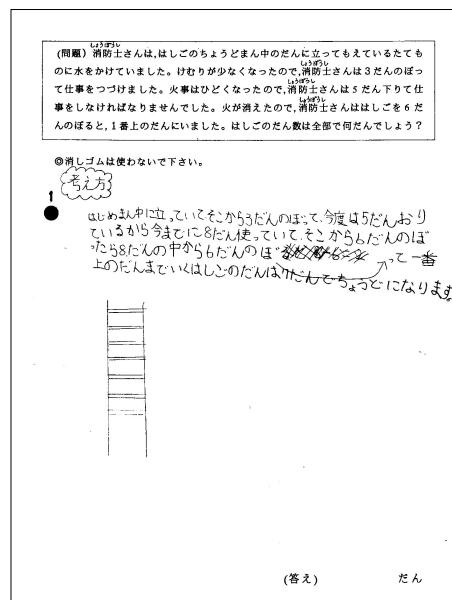 (問題)消防士さんは,はしごのちょうどまん中のだんに立ってもえているたても
のに水をかけていました。けむりが少なくなったので,消防士さんは3だんのぼっ
て仕事をつづけました。火事はひどくなったので,消防士さんは5だん下りて仕
事をしなければなりませんでした。火が消えたので,消防士さんははしごを6だ
んのぼると,1番上のだんにいました。はしごのだん数は全部で何だんでしょう?
◎消しゴムは使わないで下さい。
考え方
1
はじめまん中に立っていてそこから3だんのぼって、今度は5だんおり
ているから今までに8だん使っていて、そこから6だんのぼ
ったら8だんの中から6だんのぼって一番
上のだんまでいくはしごのだんは7だんでちょうどになります
(答え) だん